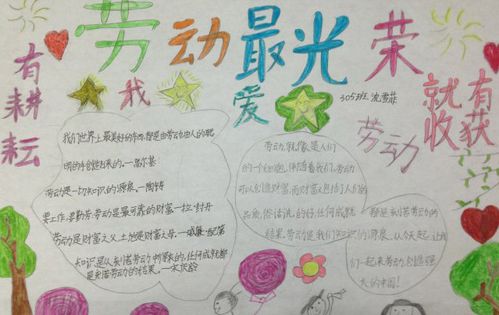 劳动最光荣
有耕耘
就有收获
我爱劳动
305班 沈雪菲
我们世界上最美好的东西都是由劳动由人的聪
明的手创造出来的。—高尔基
劳动是一切知识的源泉。—陶铸
要工作,要勤劳:劳动是最可靠的财富。—拉·封丹
劳动是财富之父,土地是财富之母。—威廉·配第
知识是从刻苦劳动中得来的,任何成就都
是刻苦劳动的结果。—宋庆龄
劳动,就像是人们
的一个细胞,伴随着我们,劳动
可以创造财富,而财富包括人们的
品质
任何成就
都是刻苦劳动的
结果,劳动是我们知识的源泉,从今天起,让我
们一起来劳动,创造强
大的中国!